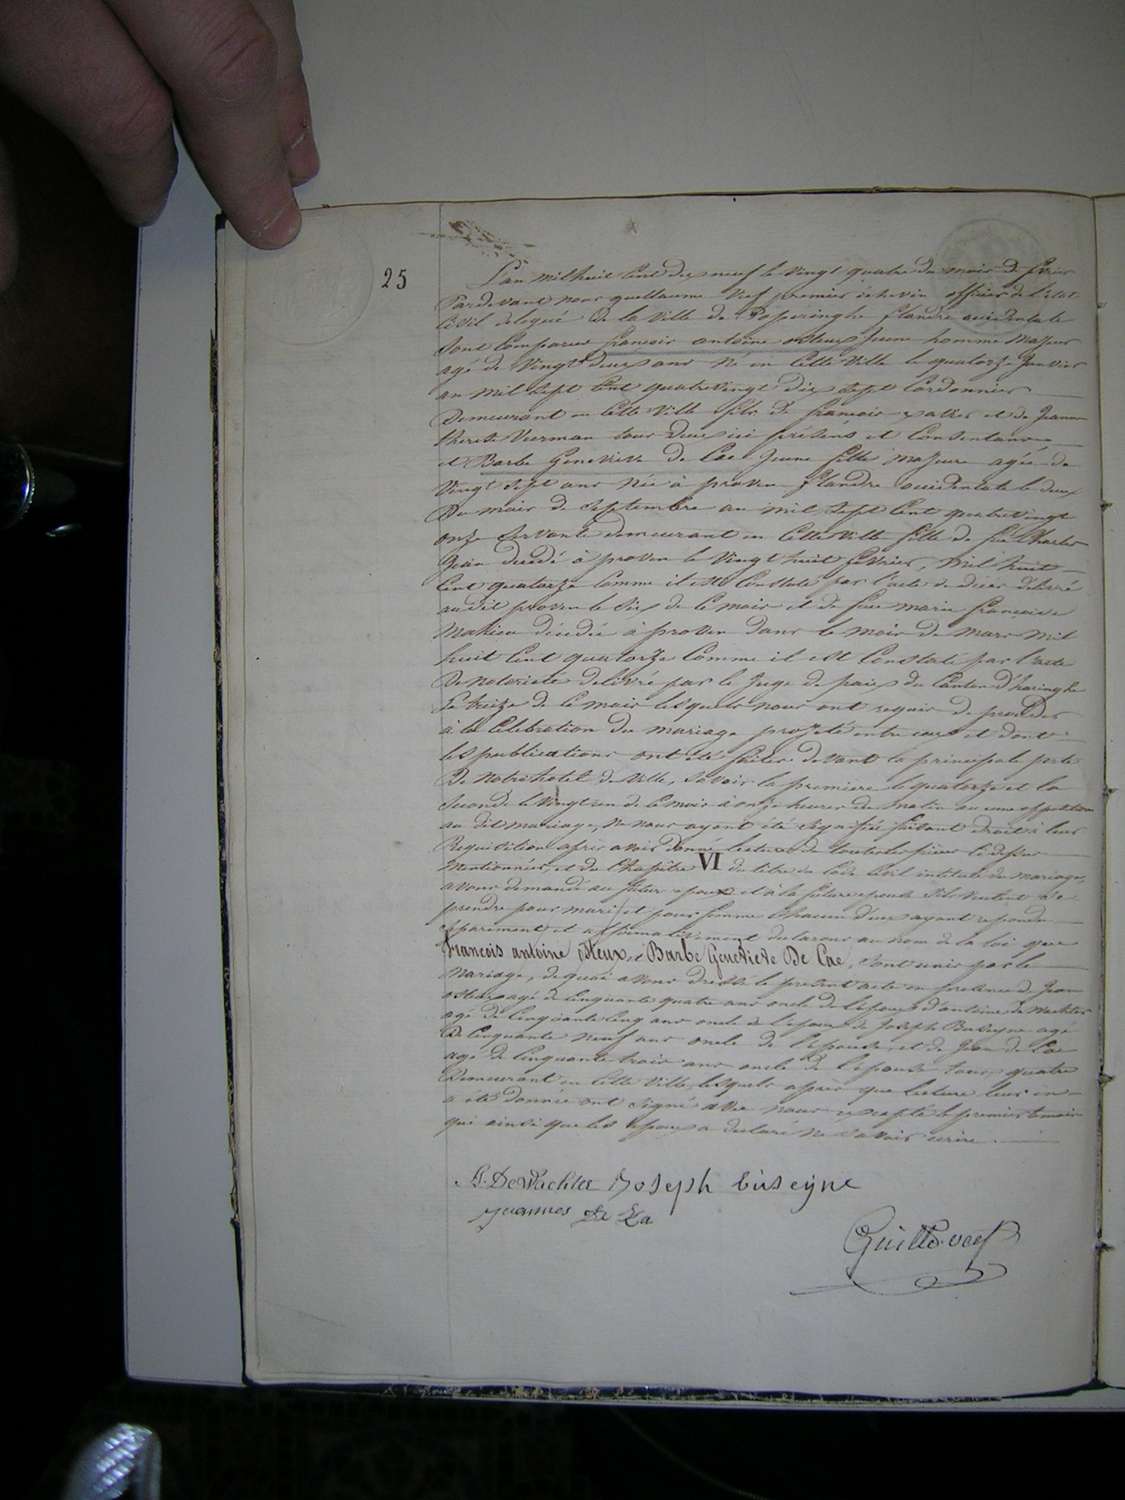 25
L'an mil huit cent dix neuf le vingt quatre du mois de
Par devant nous guillaume premier échevin officier de l'état
Civil delegué de la Ville de Poperinghe flandre occidentale
Sont comparus françois antoine osteux jeune homme majeur
agé de Vingt deux ans né en cette ville le quatorze janvier
an mil sept cent quatrevingt dix sept Cordonnier
Demeurant en cette Ville fils de françois et de jeanne
therese Veerman tous deux ici présens et Consentans
et Barbe Genevieve de Cae jeune fille majeure agée de
Vingt sept ans née à proven flandre occidentale le deux
Du mois de Septembre an mil sept cent quatrevingt
onze Servante demeurant en cette Ville fille de feu Charles
jean decedé à proven le vingt huit fevrier, mil huit
Cent quatorze Comme il est Constaté par l'acte de deces délivré
audit proven le six de ce mois et de feue marie françoise
Mahieu décedée à proven dans le mois de mars mil
huit Cent quatorze Comme il est Constaté par l'acte
De notorieté delivré par le juge de paix du Canton d'haringhe
le treize de ce mois lesquels nous ont requis de proceder
à la Célébration du mariage projeté entre eux et dont
les publications ont été faites devant la principale porte
De notre hotel de Ville, Savoir la premiere le quatorze et la
Seconde le Vingt un de ce mois à onze heures du matin aucune opposition
au dit mariage, ne nous ayant été signifiée faisant droit à leur
Requisition après avoir donné lecture de toutes les pieces ci dessus
Mentionnées, et du Chapitre VI du titre du Code Civil intitulé du mariage,
avons demandé au futur epoux et à la future epouse s'ils veulent se
prendre pour mari et pour femme Chacun d'eux ayant repondu
séparement et affirmativement declarons au nom de la loi que
françois antoine osteux, et Barbe Genevieve De Cae, Sont unis par le
Mariage, de quoi avons dressé le présent acte en presence de Jean
osteux agé de Cinquante quatre ans oncle de l'epoux d'antoine de Wachter
agé de Cinquante Cinq ans oncle de l'epoux, de Joseph Buseyne agé
De Cinquante neuf ans oncle de l'epouse et de Jean de Cae
agé de Cinquante trois ans oncle de l'epouse tous quatre
Demeurant en cette Ville, lesquels après que lecture leur en
a été donnée ont signé avec nous excepté le premier temoin
qui ainsi que les epoux a declaré ne Savoir ecrire.
A. DeWachter Joseph buseyne
joannes De
Guille